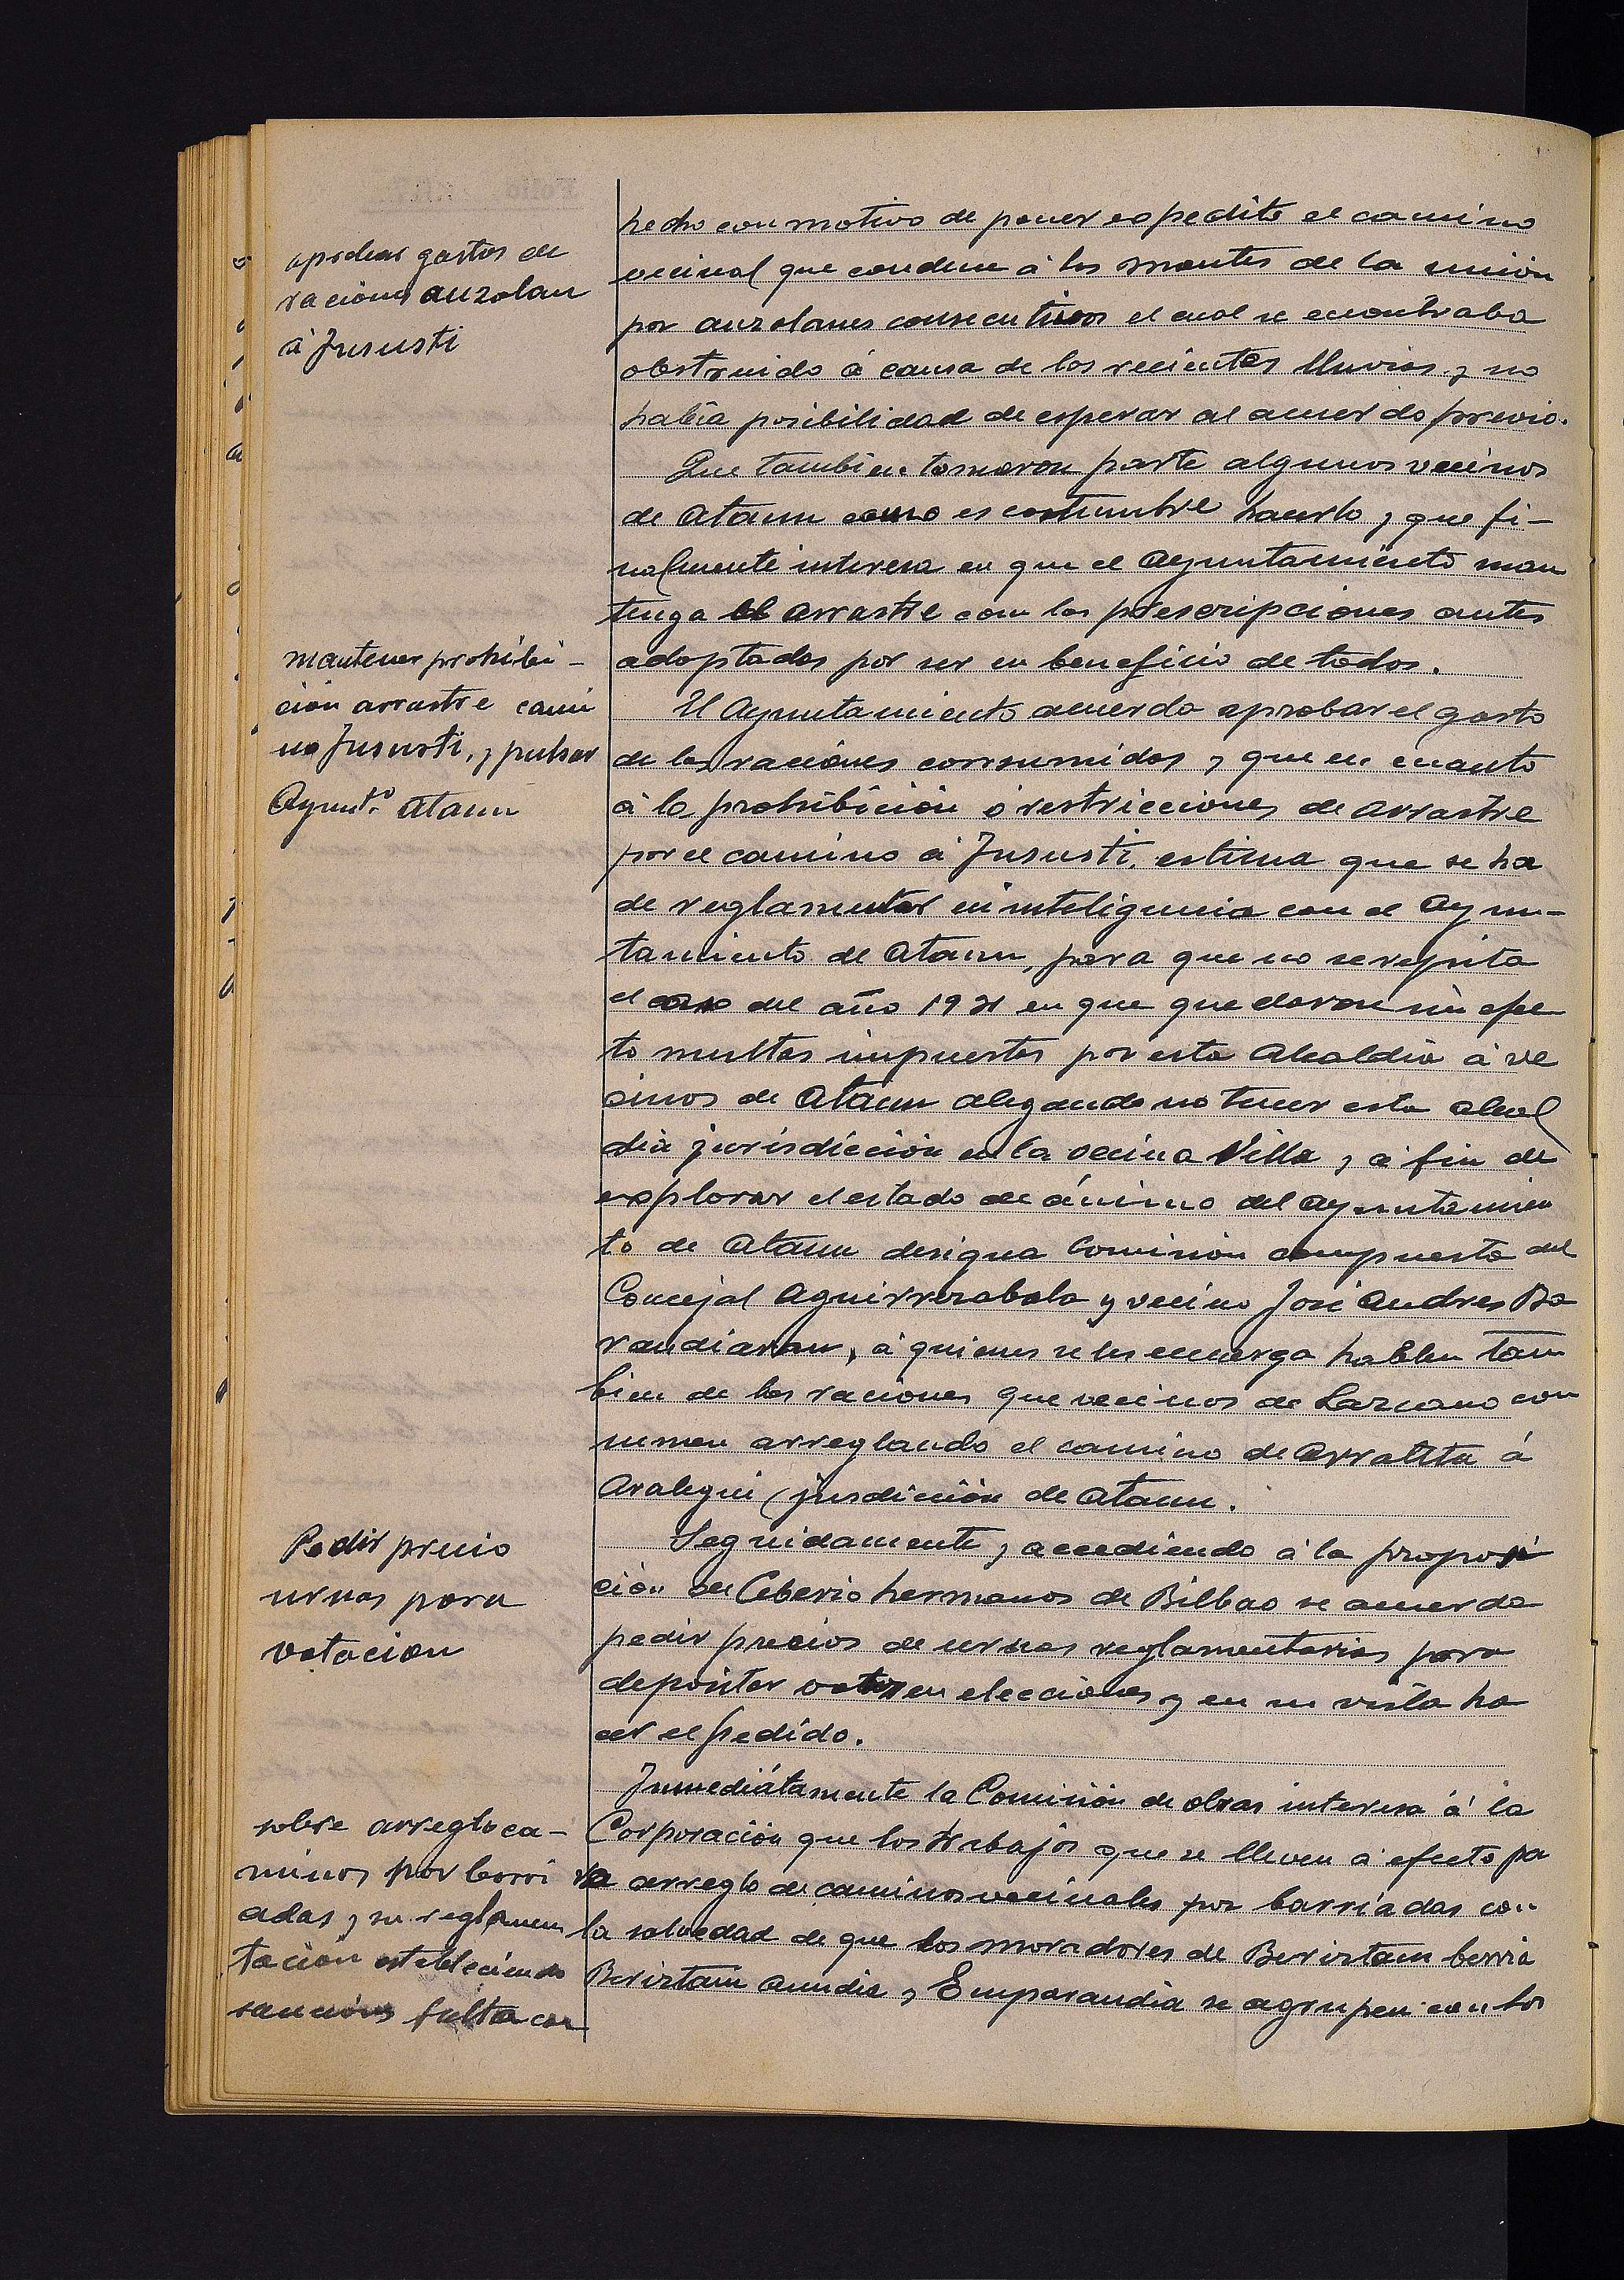 aprobar gastos de
raciones auzolan
á Jususti
hecho con motivo de poner expedito el camino
vecinal que conduce á los montes de la unión
por auzolanes consecutivos el cual se encontraba
obstruido á causa de las recientes lluvias y no
había posibilidad de esperar al acuerdo previo.
Que tambien tomaron parte algunos vecinos
de Ataun como es costumbre hacerlo, y que fi-
nalmente interesa en que el Ayuntamiento man
tenga el arrastre con las prescripciones antes
adoptadas por ser en beneficio de todos.
mantener prohibi-
ción arrastre cami
no Jususti, y pulsar
Ayunt.º Ataun
El Ayuntamiento acuerda aprobar el gasto
de las raciones consumidas y que en cuanto
á la prohibición ó restricciones de arrastre
por el camino á Jususti, estima que se ha
de reglamentar en inteligencia con el Ayun-
tamiento de Ataun, para que no se repita
el caso del año 1921 en que quedaron sin efec
to multas impuestas por esta Alcaldia á ve
cinos de Ataun alegando no tener esta alcal
dia jurisdicción en la vecina Villa, y á fin de
explorar el estado de ánimo del Ayuntamien
to de Ataun designa Comisión compuesta del
Concejal Aguirrezabala y vecino José Andres Ba
randiaran, á quienes se les encarga hablen tam
bien de las raciones que vecinos de Lazcano con
sumen arreglando el camino de Arratitu á
Aralegui (jusdicción de Ataun.
Pedir precio
urnas para
votacion
Seguidamente, y accediendo á la proposi
ción de Ceberio hermanos de Bilbao se acuerda
pedir precios de urnas reglamentarias para
depositar votos en elecciones y en su vista ha
cer el pedido.
sobre arreglo ca-
minos por barri
adas, y su reglamen
tación estableciendo
sanciones falta con
Inmediátamente la Comisión de obras interesa á la
Corporación que los trabajos que se lleven á efecto pa
ra arreglo de caminos vecinales por barriadas con
la salvedad de que los moradores de Beriztain berria
Beriztain aundia y Emparandia se agrupen con los